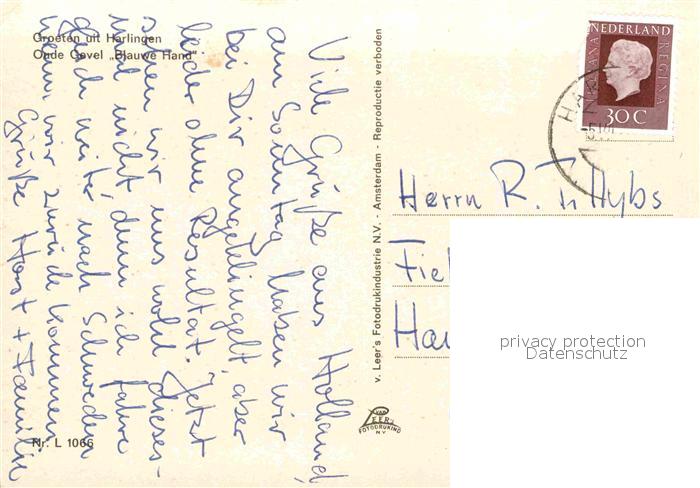 Groeten uit Harlingen
Oude Gevel „Blauwe Hand"
Viele Grüße aus Holland,
am Sonntag haben wir
bei Dir angeklingelt, aber
leider ohne Resultat. Jetzt
sehen wir uns wohl dieses-
mal nicht, denn ich fahre
gleich weiter nach Schweden
wenn wir zurück kommen
Grüße Horst + Familie
Nr. L 1066
v. Leer's Fotodrukindustrie N.V. - Amsterdam - Reproductie verboden
VAN
LEER's
FOTODRUKIND
N.V.
NEDERLAND
JULIANA
REGINA
30 C
HAR
Herrn R.
Fie
Ha
privacy protection
Datenschutz